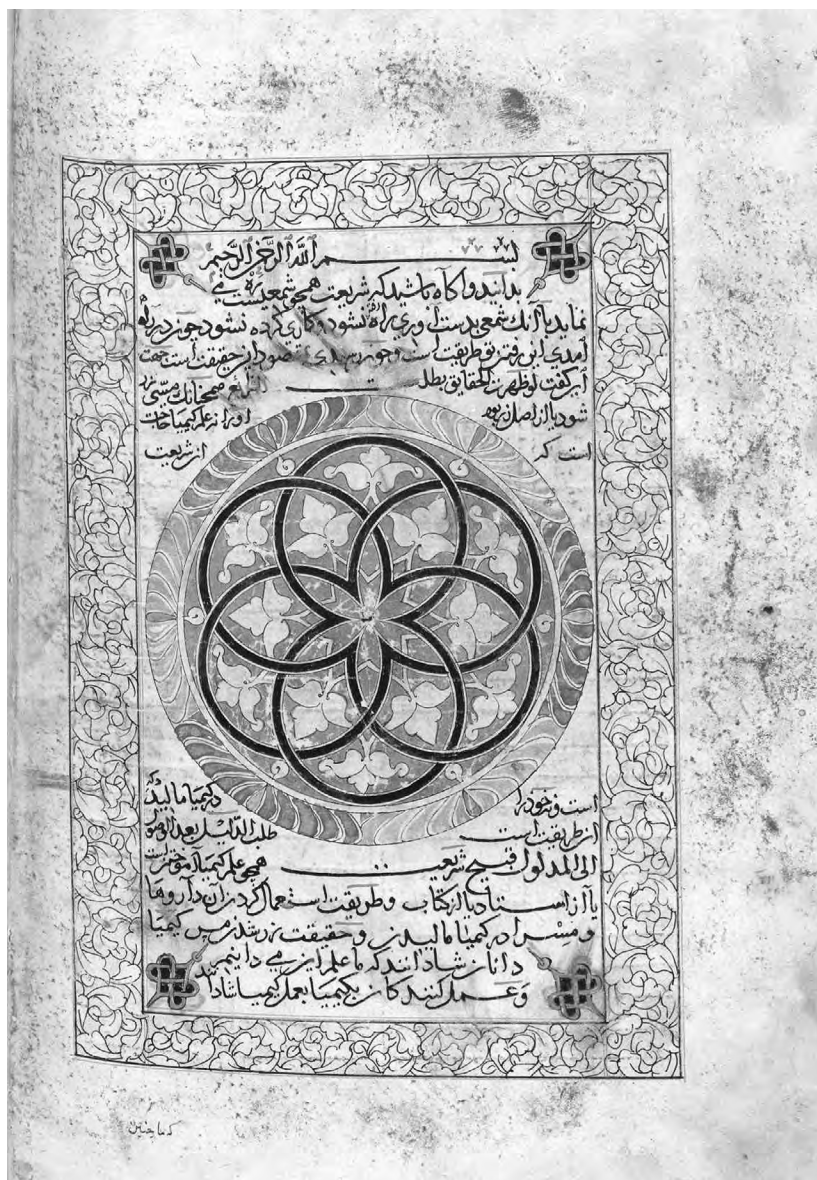 بسم الله الرحمن الرحيم
بدانید و آگاه باشید که شریعت همچو شمعیست ره می
نماید بی‌آنک شمعی بدست آوری راه نشود و کاری کرده نشود چون در ره
آمدی این رفتن تو طریقت است و چون رسیدی بمقصود آن حقیقت است جهت
این گفت لو ظهرت الحقایق بطلت الشرایع همچنانک مسی زر
شود یا از اصل زر بود او را نه علم کیمیا حاجت
است که آن شریعت
است و نه خود را در کیمیا مالیدن که
آن طریقت است طلب الدلیل بعد الوصول
الی المدلول قبیح شریعت همچو علم کیمیا آموختنست
یا از استاد یا از کتاب و طریقت استعمال کردن آن داروها
و مس را در کیمیا مالیدن و حقیقت زر شدن مس کیمیا
دانان شادند که ما علم این می دانیم
و عمل کنندکان بکیمیا بعمل کیمیا شادند
که ما چنین